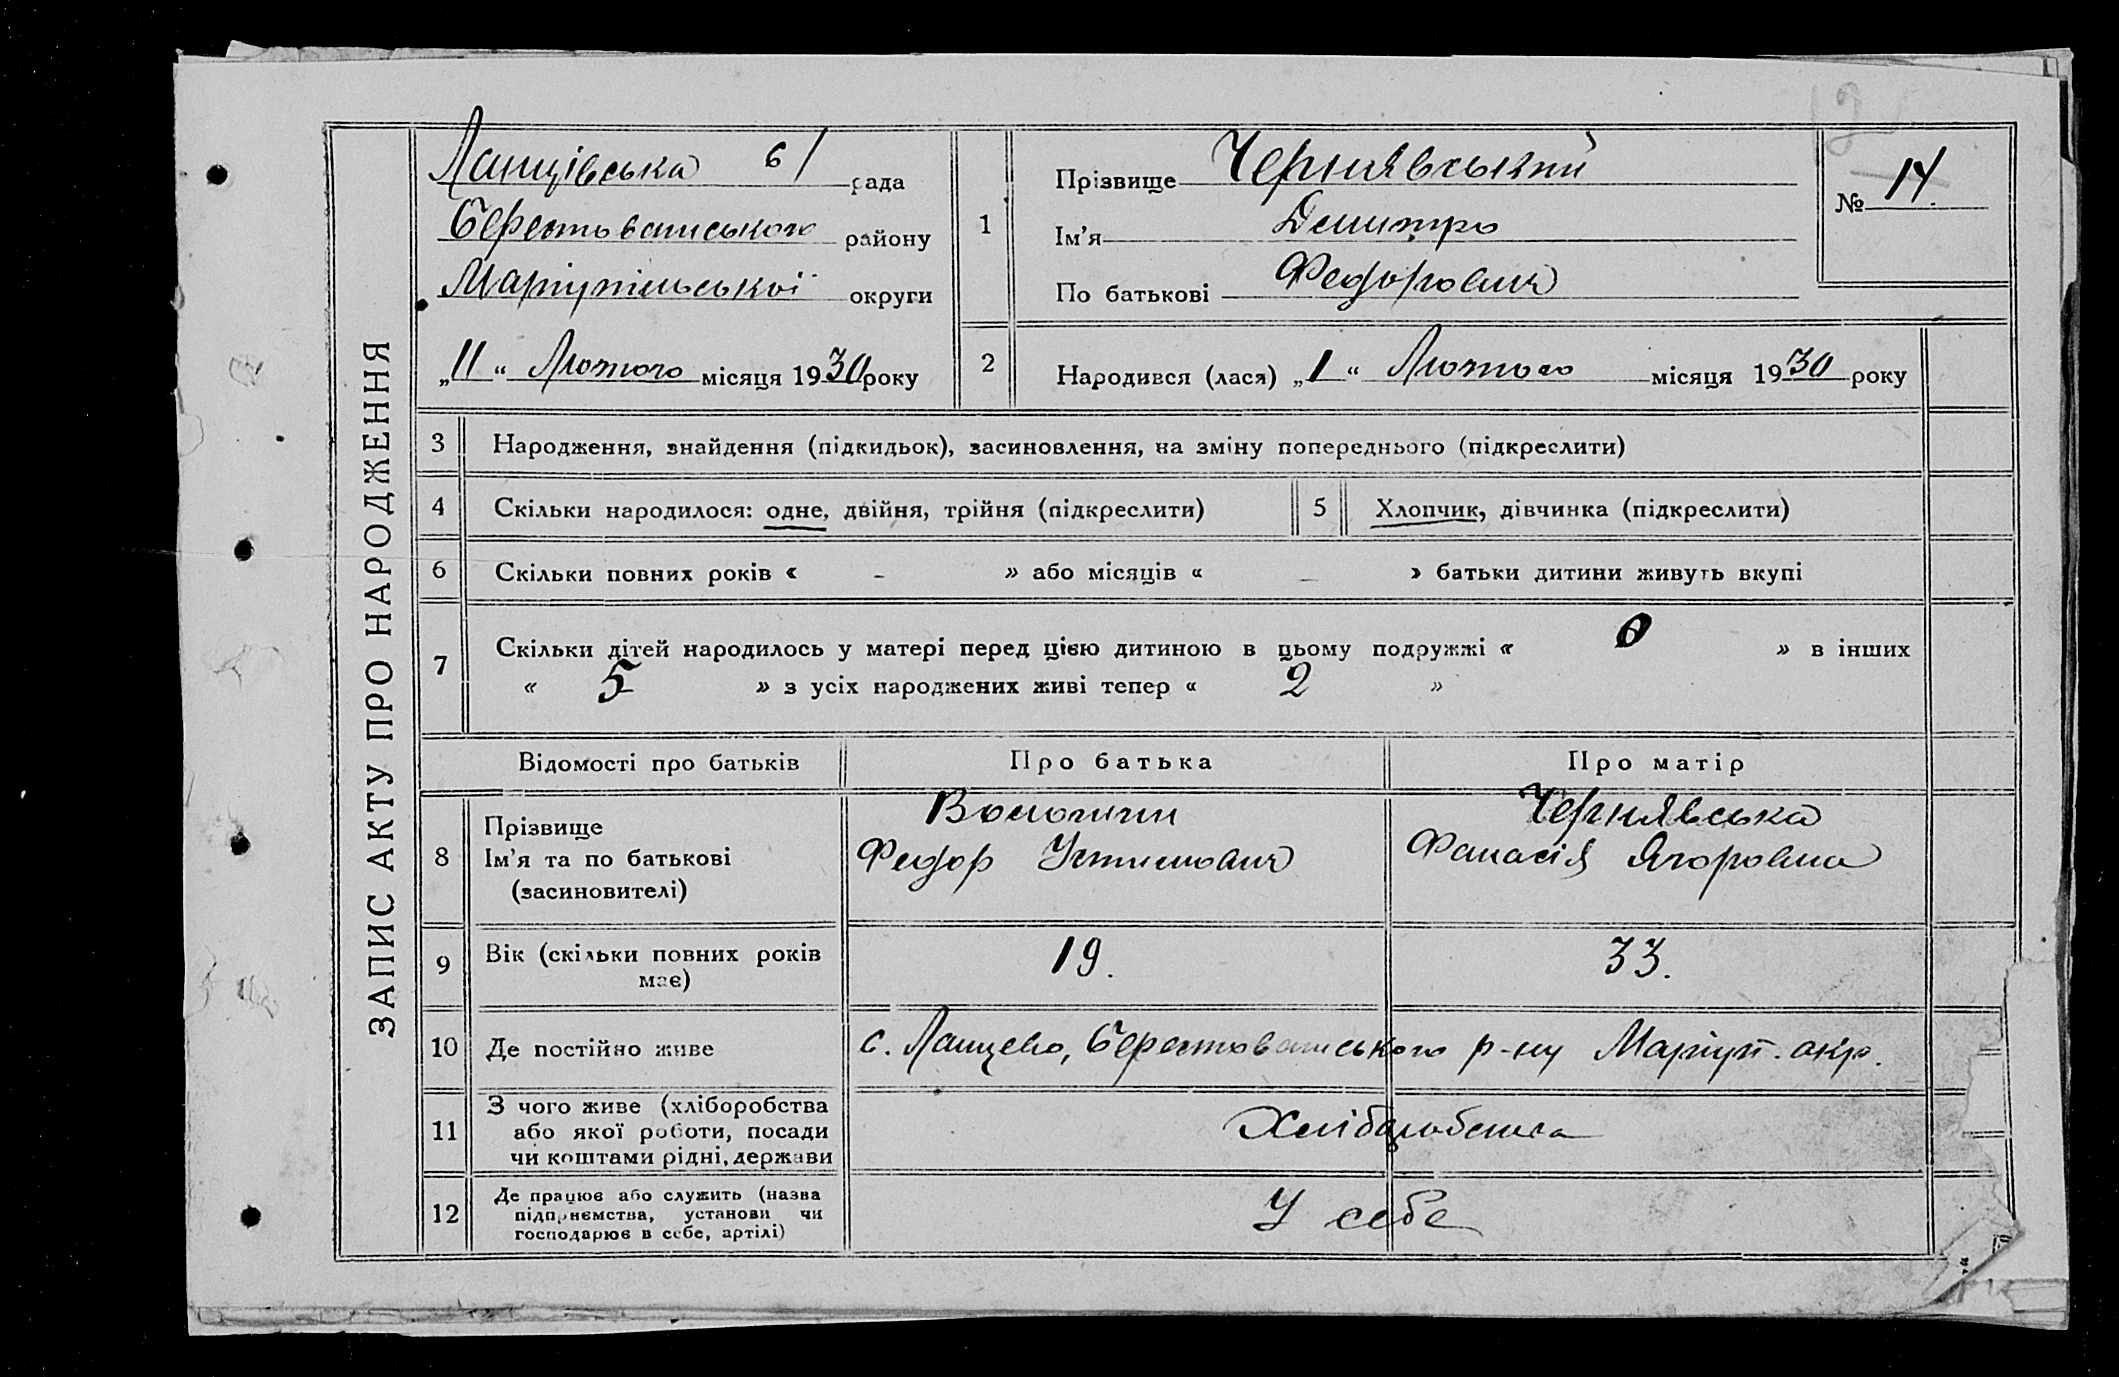 ЗАПИС АКТУ ПРО НАРОДЖЕННЯ
Ланцівська с/ рада
Берестоватського району
Маріупільської округи
„11“ Лютого місяця 1930 року
1
Прізвище Чернявський
Ім'я Дмитро
По батькові Федорович
№ 14.
2
Народився (лася) „1“ Лютого місяця 1930 року
3 Народження, знайдення (підкидьок), засиновлення, на зміну попереднього (підкреслити)
4 Скільки народилося: одне, двійня, трійня (підкреслити)
5 Хлопчик, дівчинка (підкреслити)
6 Скільки повних років « – » або місяців « – » батьки дитини живуть вкупі
7 Скільки дітей народилось у матері перед цією дитиною в цьому подружжі « 0 » в інших
« 5 » з усіх народжених живі тепер « 2 »
Відомості про батьків Про батька Про матір
8 Прізвище
Ім'я та по батькові
(засиновителі)
Федор Устимович
Чернявська
Фанасія Ягоровна
9 Вік (скільки повних років
має)
19. 33.
10 Де постійно живе с. Ланцево, Берестоватського р-ну Маріуп. окр.
11 З чого живе (хліборобства
або якої роботи, посади
чи коштами рідні, держави
Хліборобства
12 Де працює або служить (назва
підприємства, установи чи
господарює в себе, артілі)
У себе